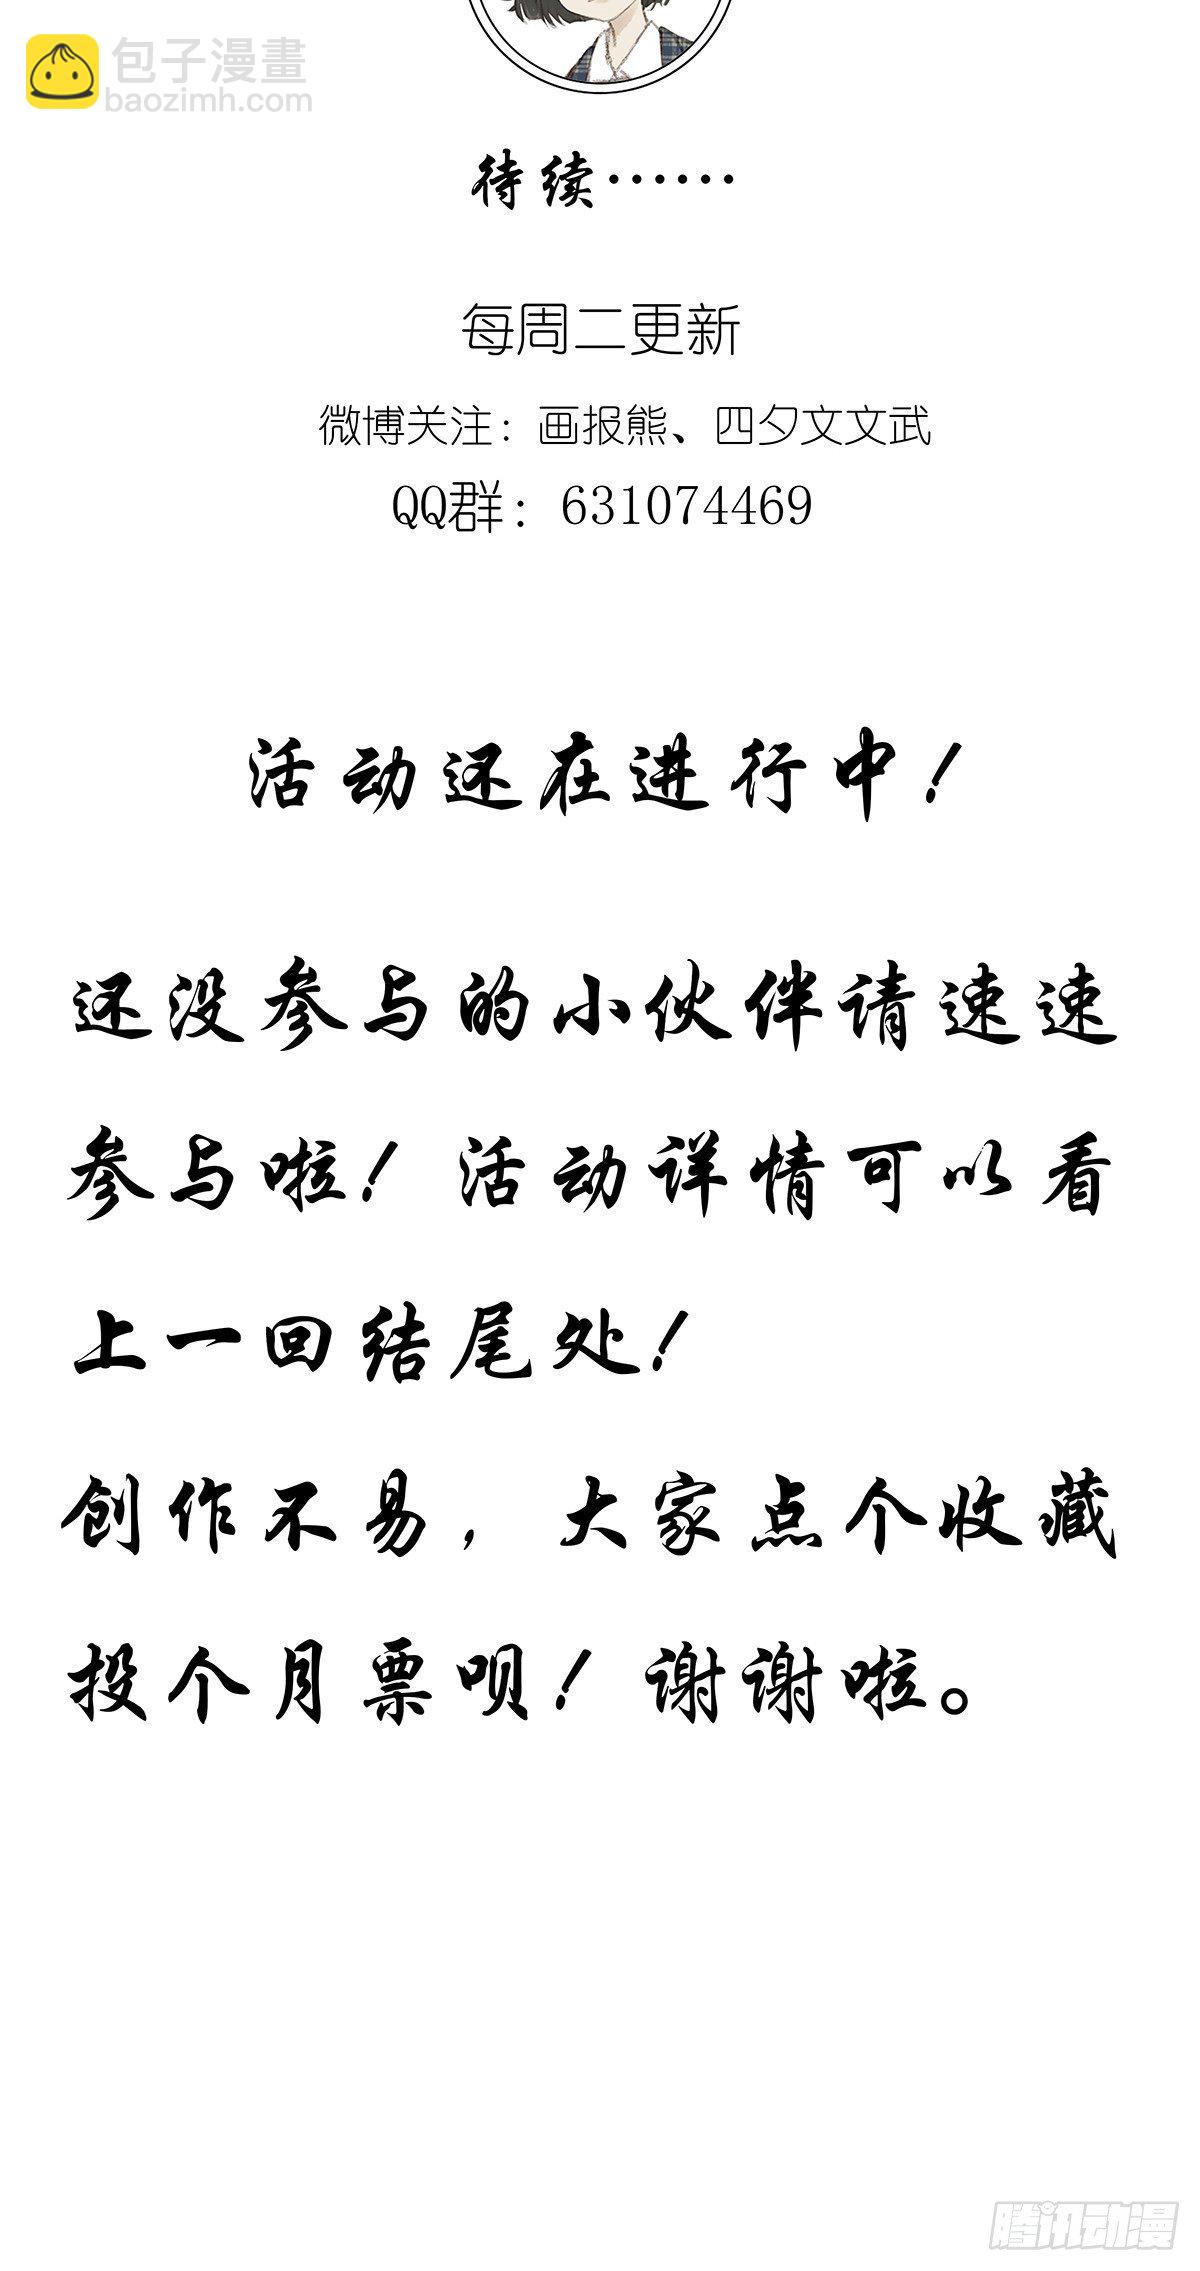 包子漫畫
baozimh.com
待续······
每周二更新
微博关注：画报熊、四夕文文武
QQ群：631074469
活动还在进行中！
还没参与的小伙伴请速速
参与啦！活动详情可以看
上一回结尾处！
创作不易，大家点个收藏
投个月票呗！谢谢啦。
腾讯动漫